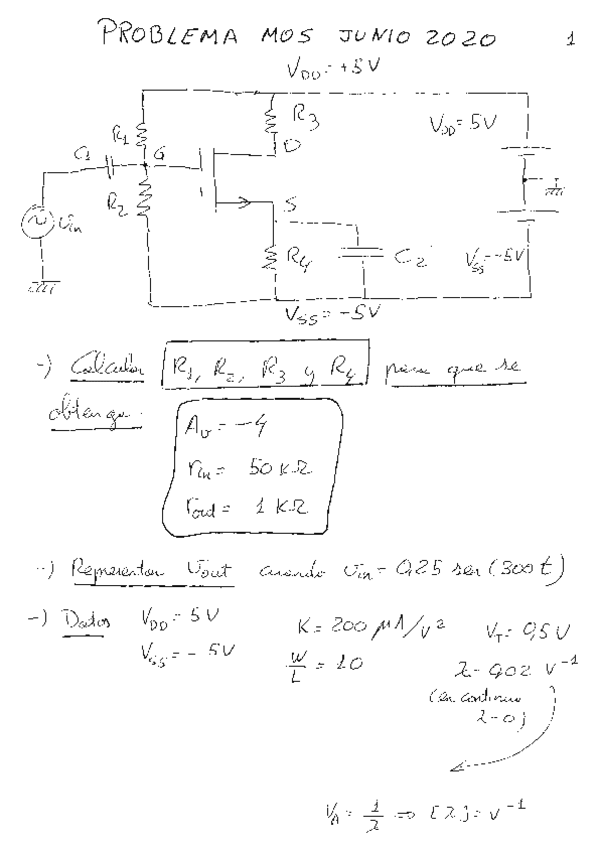 PROBLEMA MOS JUNIO 2020 1
VDD = +5V
R3
VDD = 5V
R1
C1
G
D
R2
vin
S
R4
C2
VSS = -5V
VSS = -5V
-) Calcular R1, R2, R3 y R4 para que se
obtenga:
Av = -4
rin = 50 KΩ
rout = 1 KΩ
-) Representar Vout cuando vin = 0,25 sen (300t)
-) Datos VDD = 5V
VSS = -5V
K = 200 μA/V² VT = 0,5V
W/L = 10
λ = 0,02 V⁻¹
(en continua
λ = 0)
VA = 1/λ ⇒ [λ] = V⁻¹